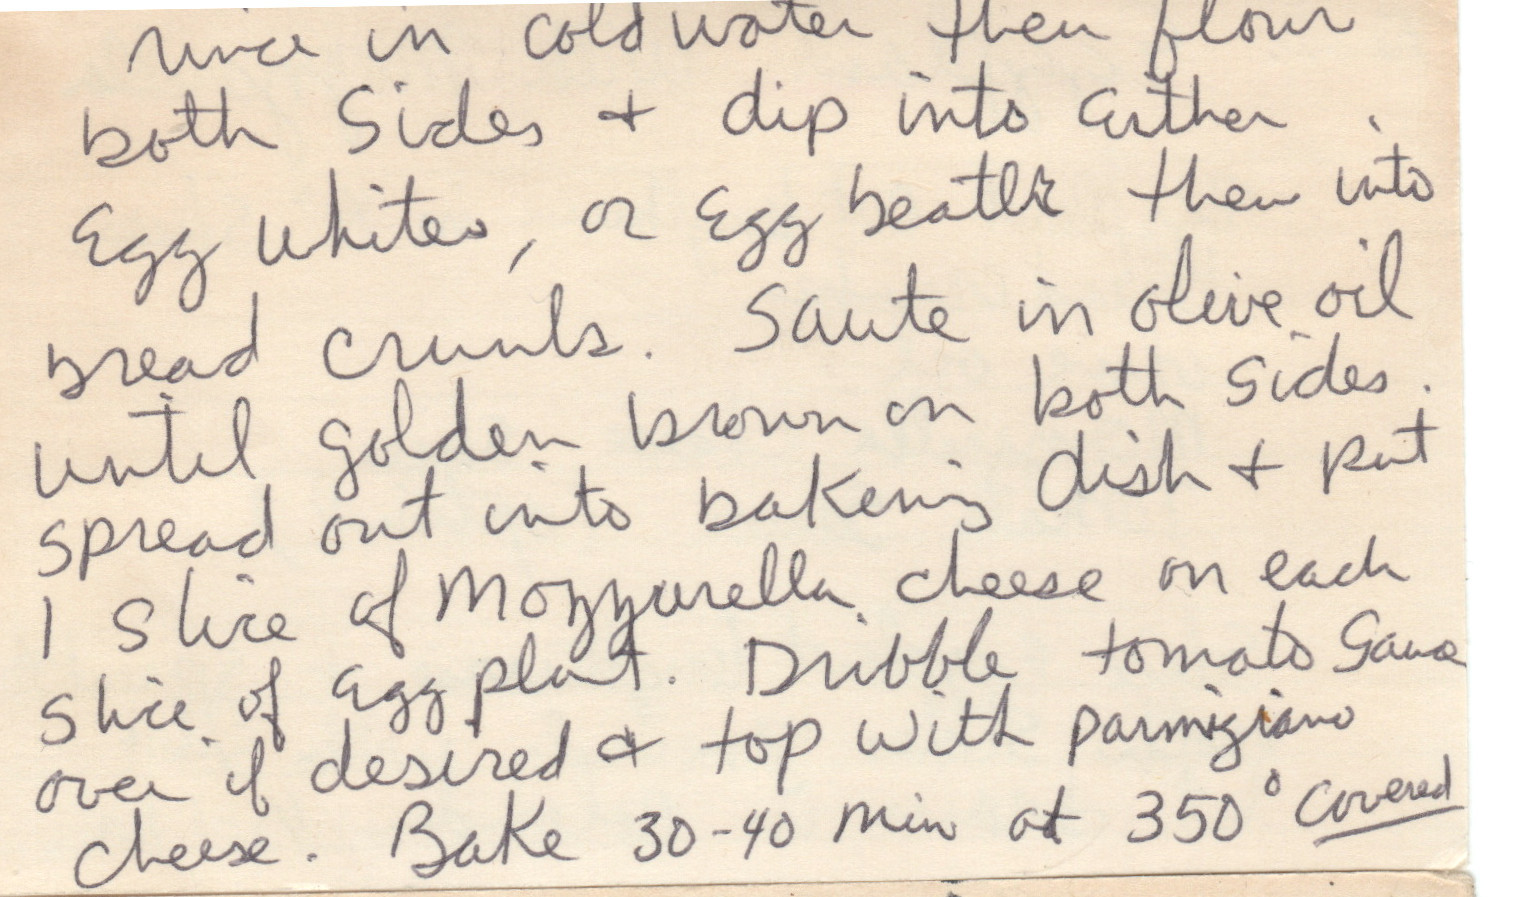 rince in cold water then flour
both Sides + dip into Either
Egg whites, or Egg beater then into
bread crumbs. Saute in olive oil
until golden brown on both sides.
spread out into baking dish + put
1 slice of Mozzarella cheese on each
slice of Egg plant. Dribble tomato Sauce
over if desired & top with parmigiano
cheese. Bake 30-40 min at 350° covered